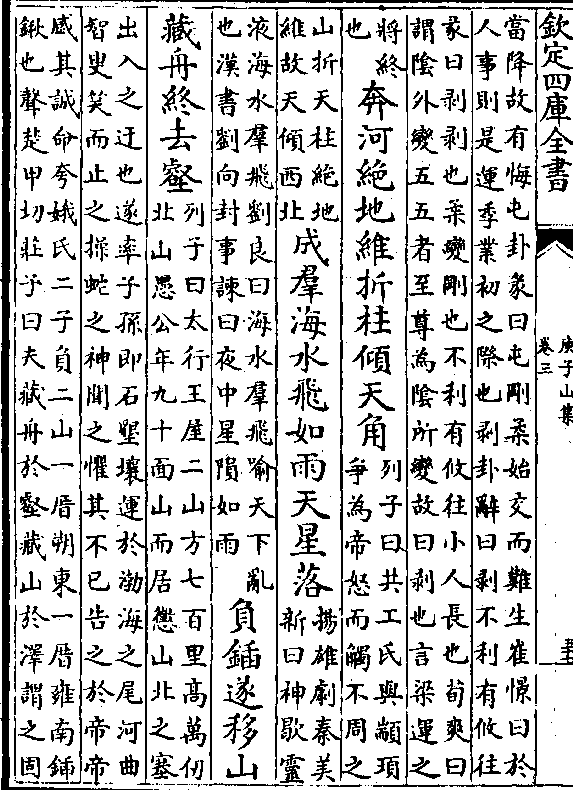 欽定四庫全書
庾子山集
卷三
當降故有悔屯卦彖曰屯剛柔始交而難生崔憬曰於
人事則是運季業初之際也剥卦辭曰剥不利有攸往
彖曰剥剥也柔變剛也不利有攸往小人長也荀爽曰
謂陰外變五五者至尊為陰所變故曰剥也言梁運之
將終
也
奔河絶地維折柱傾天角
列子曰共工氏與顓頊
爭為帝怒而觸不周之
山折天柱絶地
維故天傾西北
成羣海水飛如雨天星落
揚雄劇秦美
新曰神歇靈
液海水羣飛劉良曰海水羣飛喻天下亂
也漢書劉向封事諫曰夜中星隕如雨
負鍤遂移山
藏舟終去壑
列子曰太行王屋二山方七百里高萬仞
北山愚公年九十面山而居懲山北之塞
出入之迂也遂率子孫即石墾壤運於渤海之尾河曲
智叟笑而止之操蛇之神聞之懼其不已告之於帝帝
感其誠命夸娥氏二子負二山一厝朔東一厝雍南鍤
鍬也聲楚甲切莊子曰夫藏舟於壑藏山於澤謂之固